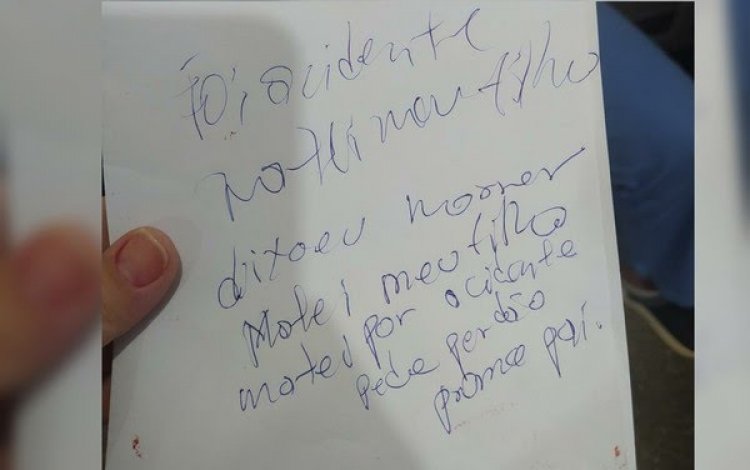 Foi acidente
matei meu filho
dixoeu morrer
Matei meu filho
matei por acidente
pede perdão
prome pai.